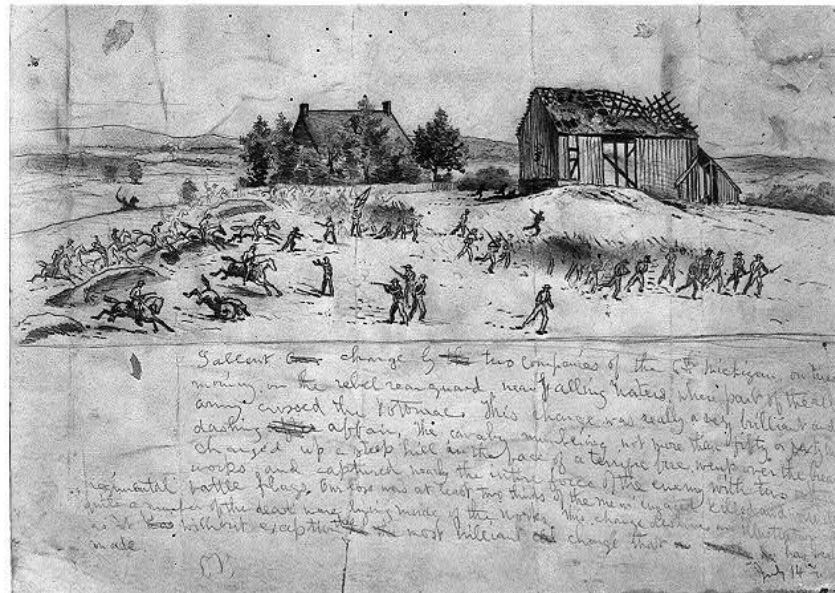 Gallent charge by two companies of the 6th Michigan on tues
morning, on the rebel rearguard, near Falling Waters, where part of the
army crossed the Potomac. This charge was really a very brilliant and
dashing affair, the cavalry numbering not more than fifty or sixty
charged up a steep hill in the face of a terrific fire, went over the
works and captured nearly the entire force of the enemy with
regimental battle flags. Our loss was at least two thirds of the men engaged killed
quite a number of the dead were lying inside of the works. This charge
as it was without exception the most brilliant charge that has
made.
July 14